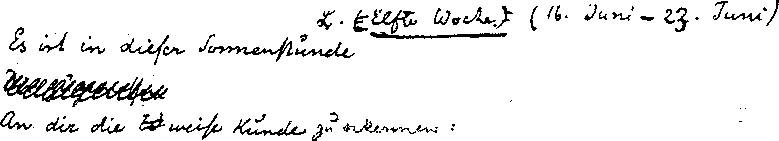 L. (Elfte Woche.) (16. Juni – 23. Juni)
Es ist in dieser Sonnenstunde
An dir die weise Kunde zu erkennen: